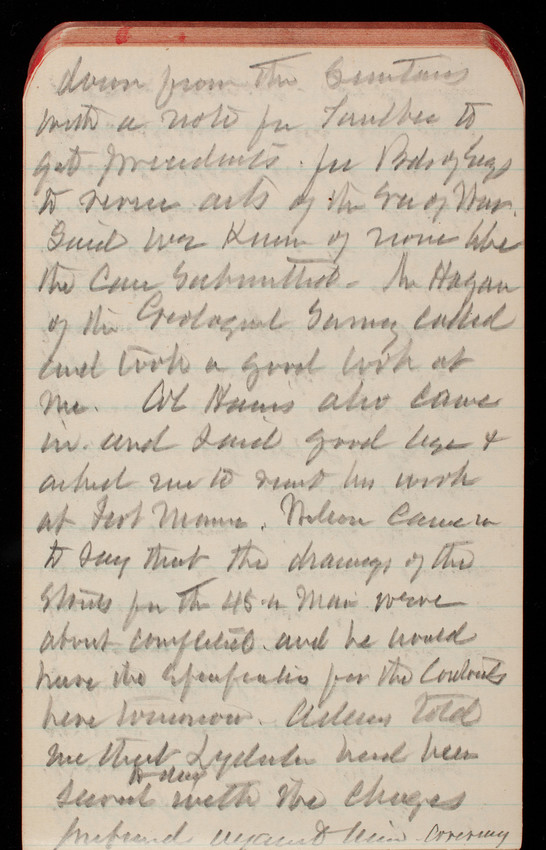 down from the
with a note for Faulkner to
get precedents for Bds of Engs
to revise acts of the Sec of War.
Said was known of none like
the Case Submitted - Mr Hagan
of the Geological Survey called
and took a good look at
me. Col Hains also came
in and said good bye &
asked me to visit his work
at Fort Monroe. Nelson came in
to say that the drawings of the
for the 45 a were
about completed and he would
have the Specification for the Contracts
here tomorrow. Adams told
me that had been
to day
served with the charges
preferred against him covering